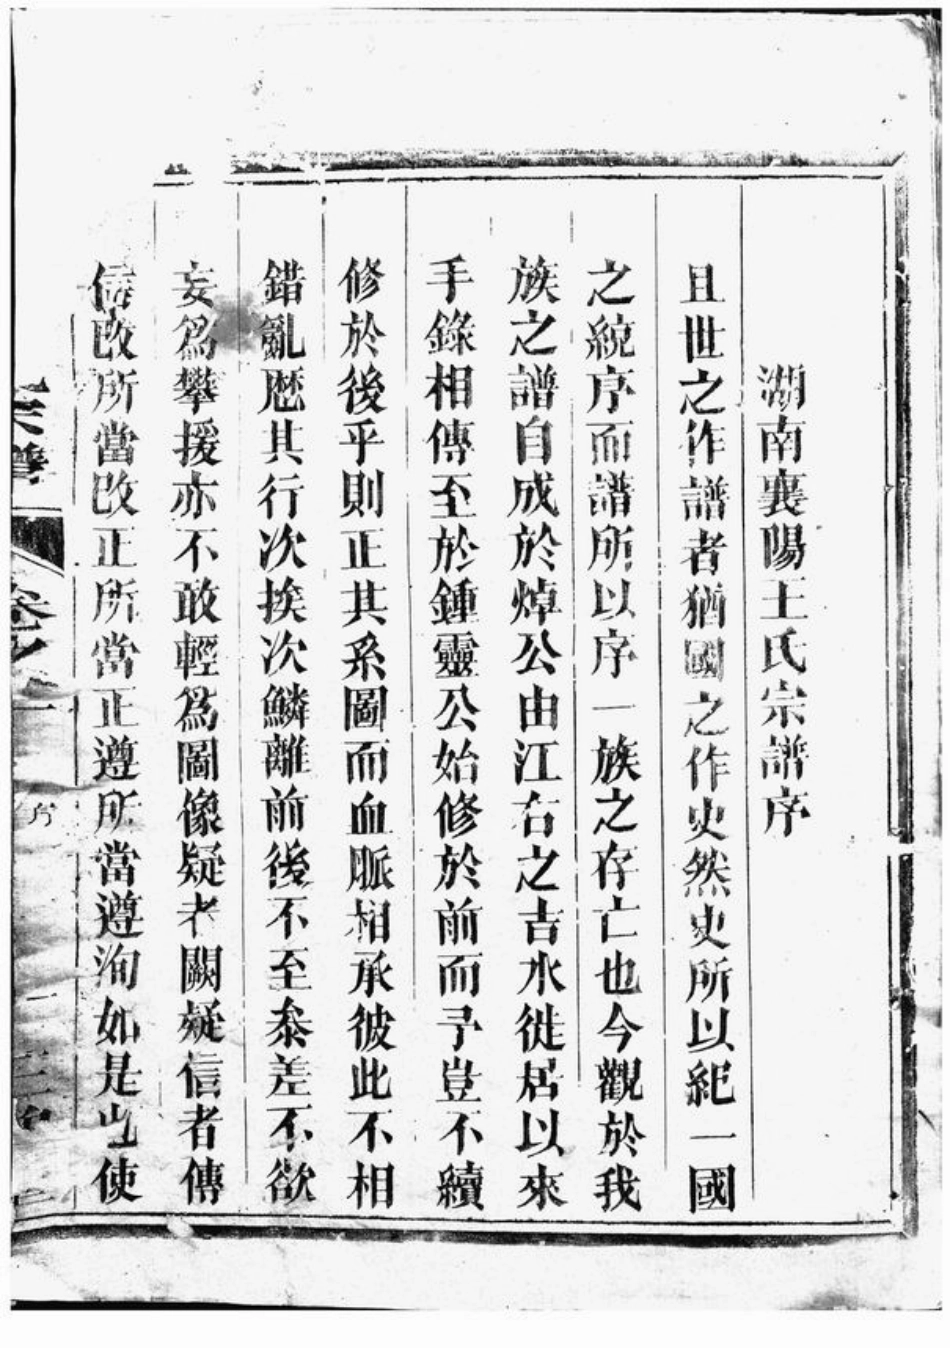 湖南襄陽王氏宗譜序
且世之作譜者猶國之作史然史所以紀一國
之統序而譜所以序一族之存亡也今觀於我
族之譜自成於焯公由江右之吉水徙居以來
手錄相傳至於鍾靈公始修於前而予豈不續
修於後乎則正其系圖而血脈相承彼此不相
錯亂歷其行次挨次鱗離前後不至叅差不欲
妄爲攀援亦不敢輕爲圖像疑者闕疑信者傳
信改所當改正所當正遵所當遵洵如是也使
宗譜
卷之一